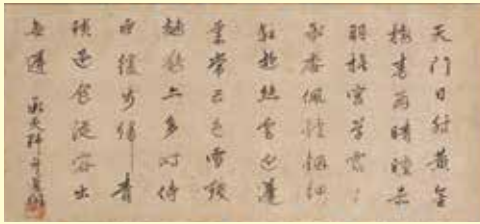 天門日射黃金
榜春殿晴曛赤
羽旗宮草霏〻
承委佩爐烟細〻
駐遊絲雲近蓬
萊常五色雪殘
鳷鵲亦多時侍
臣緩步歸青
瑣退食從容出
每遲